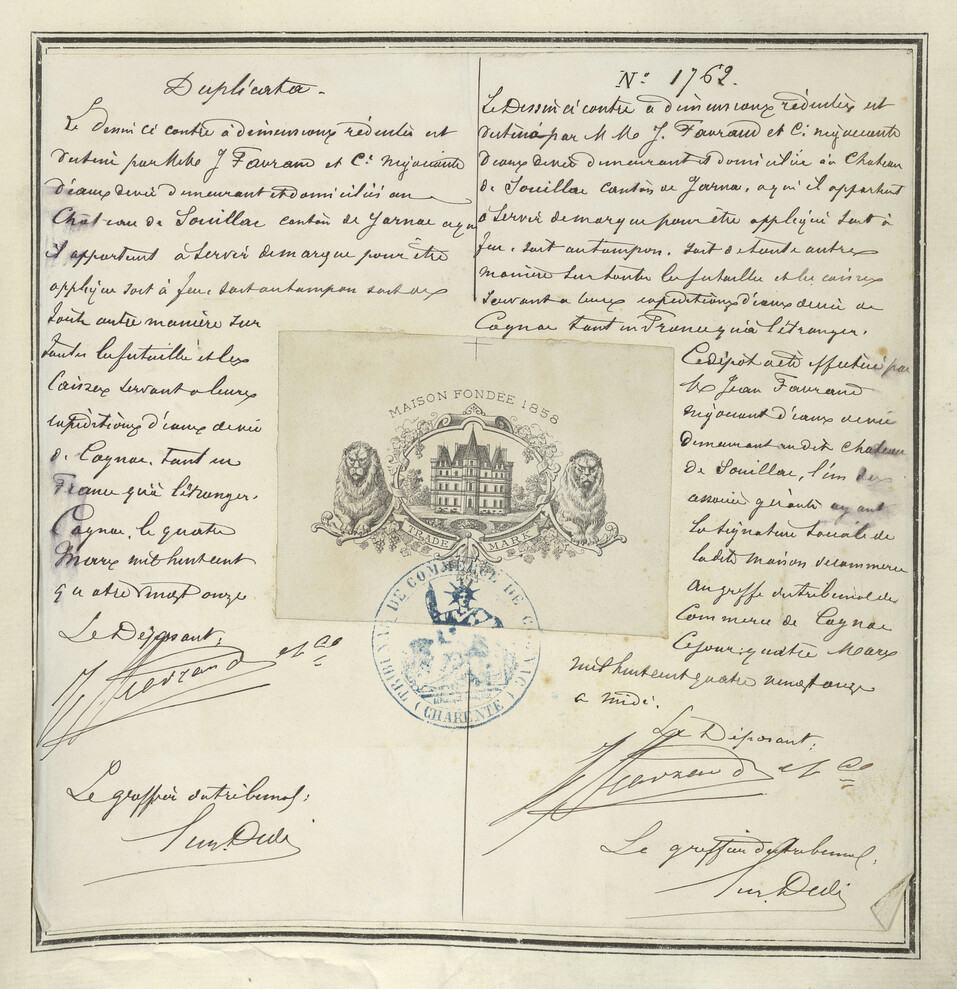 Duplicata
Le dessin ci contre à dimensions réduites est
destiné par MM J Favraud et Cie négociants
d'eaux de vie demeurant et domiciliés au
Château de Souillac canton de Jarnac a qui
il appartient à servir de marque pour être
appliqué soit à feu, soit au tampon soit de
toute autre manière sur
toutes les futailles et les
caisses servant a leurs
expéditions d'eaux de vie
de Cognac, tant en
France qu'à l'étranger.
Cognac, le quatre
Mars mil huit cent
quatre vingt onze
Le Déposant:
J Favraud et Cie
Le greffier du tribunal:
N° 1762.
Le Dessin ci contre à dimensions réduites est
destiné par MM J. Favraud et Cie négociants
d'eaux de vie demeurant et domiciliés au Chateau
de Souillac canton de Jarnac, a qui il appartient
à servir de marque pour être appliqué soit à
feu, soit au tampon, soit de toute autre
manière sur toutes les futailles et les caisses
servant a leurs expéditions d'eaux de vie de
Cognac tant en France qu'à l'étranger.
Ce dépôt a été effectué par
M Jean Favraud
négociant d'eaux de vie
demeurant au dit Chateau
de Souillac, l'un des
associés gérants ayant
la signature sociale de
la dite maison de commerce
au greffe du tribunal de
Commerce de Cognac
Ce jour quatre Mars
mil huit cent quatre vingt onze
a midi.
Le Déposant:
J Favraud et Cie
Le greffier du tribunal:
MAISON FONDEE 1858
TRADE MARK
TRIBUNAL DE COMMERCE DE COGNAC
(CHARENTE)